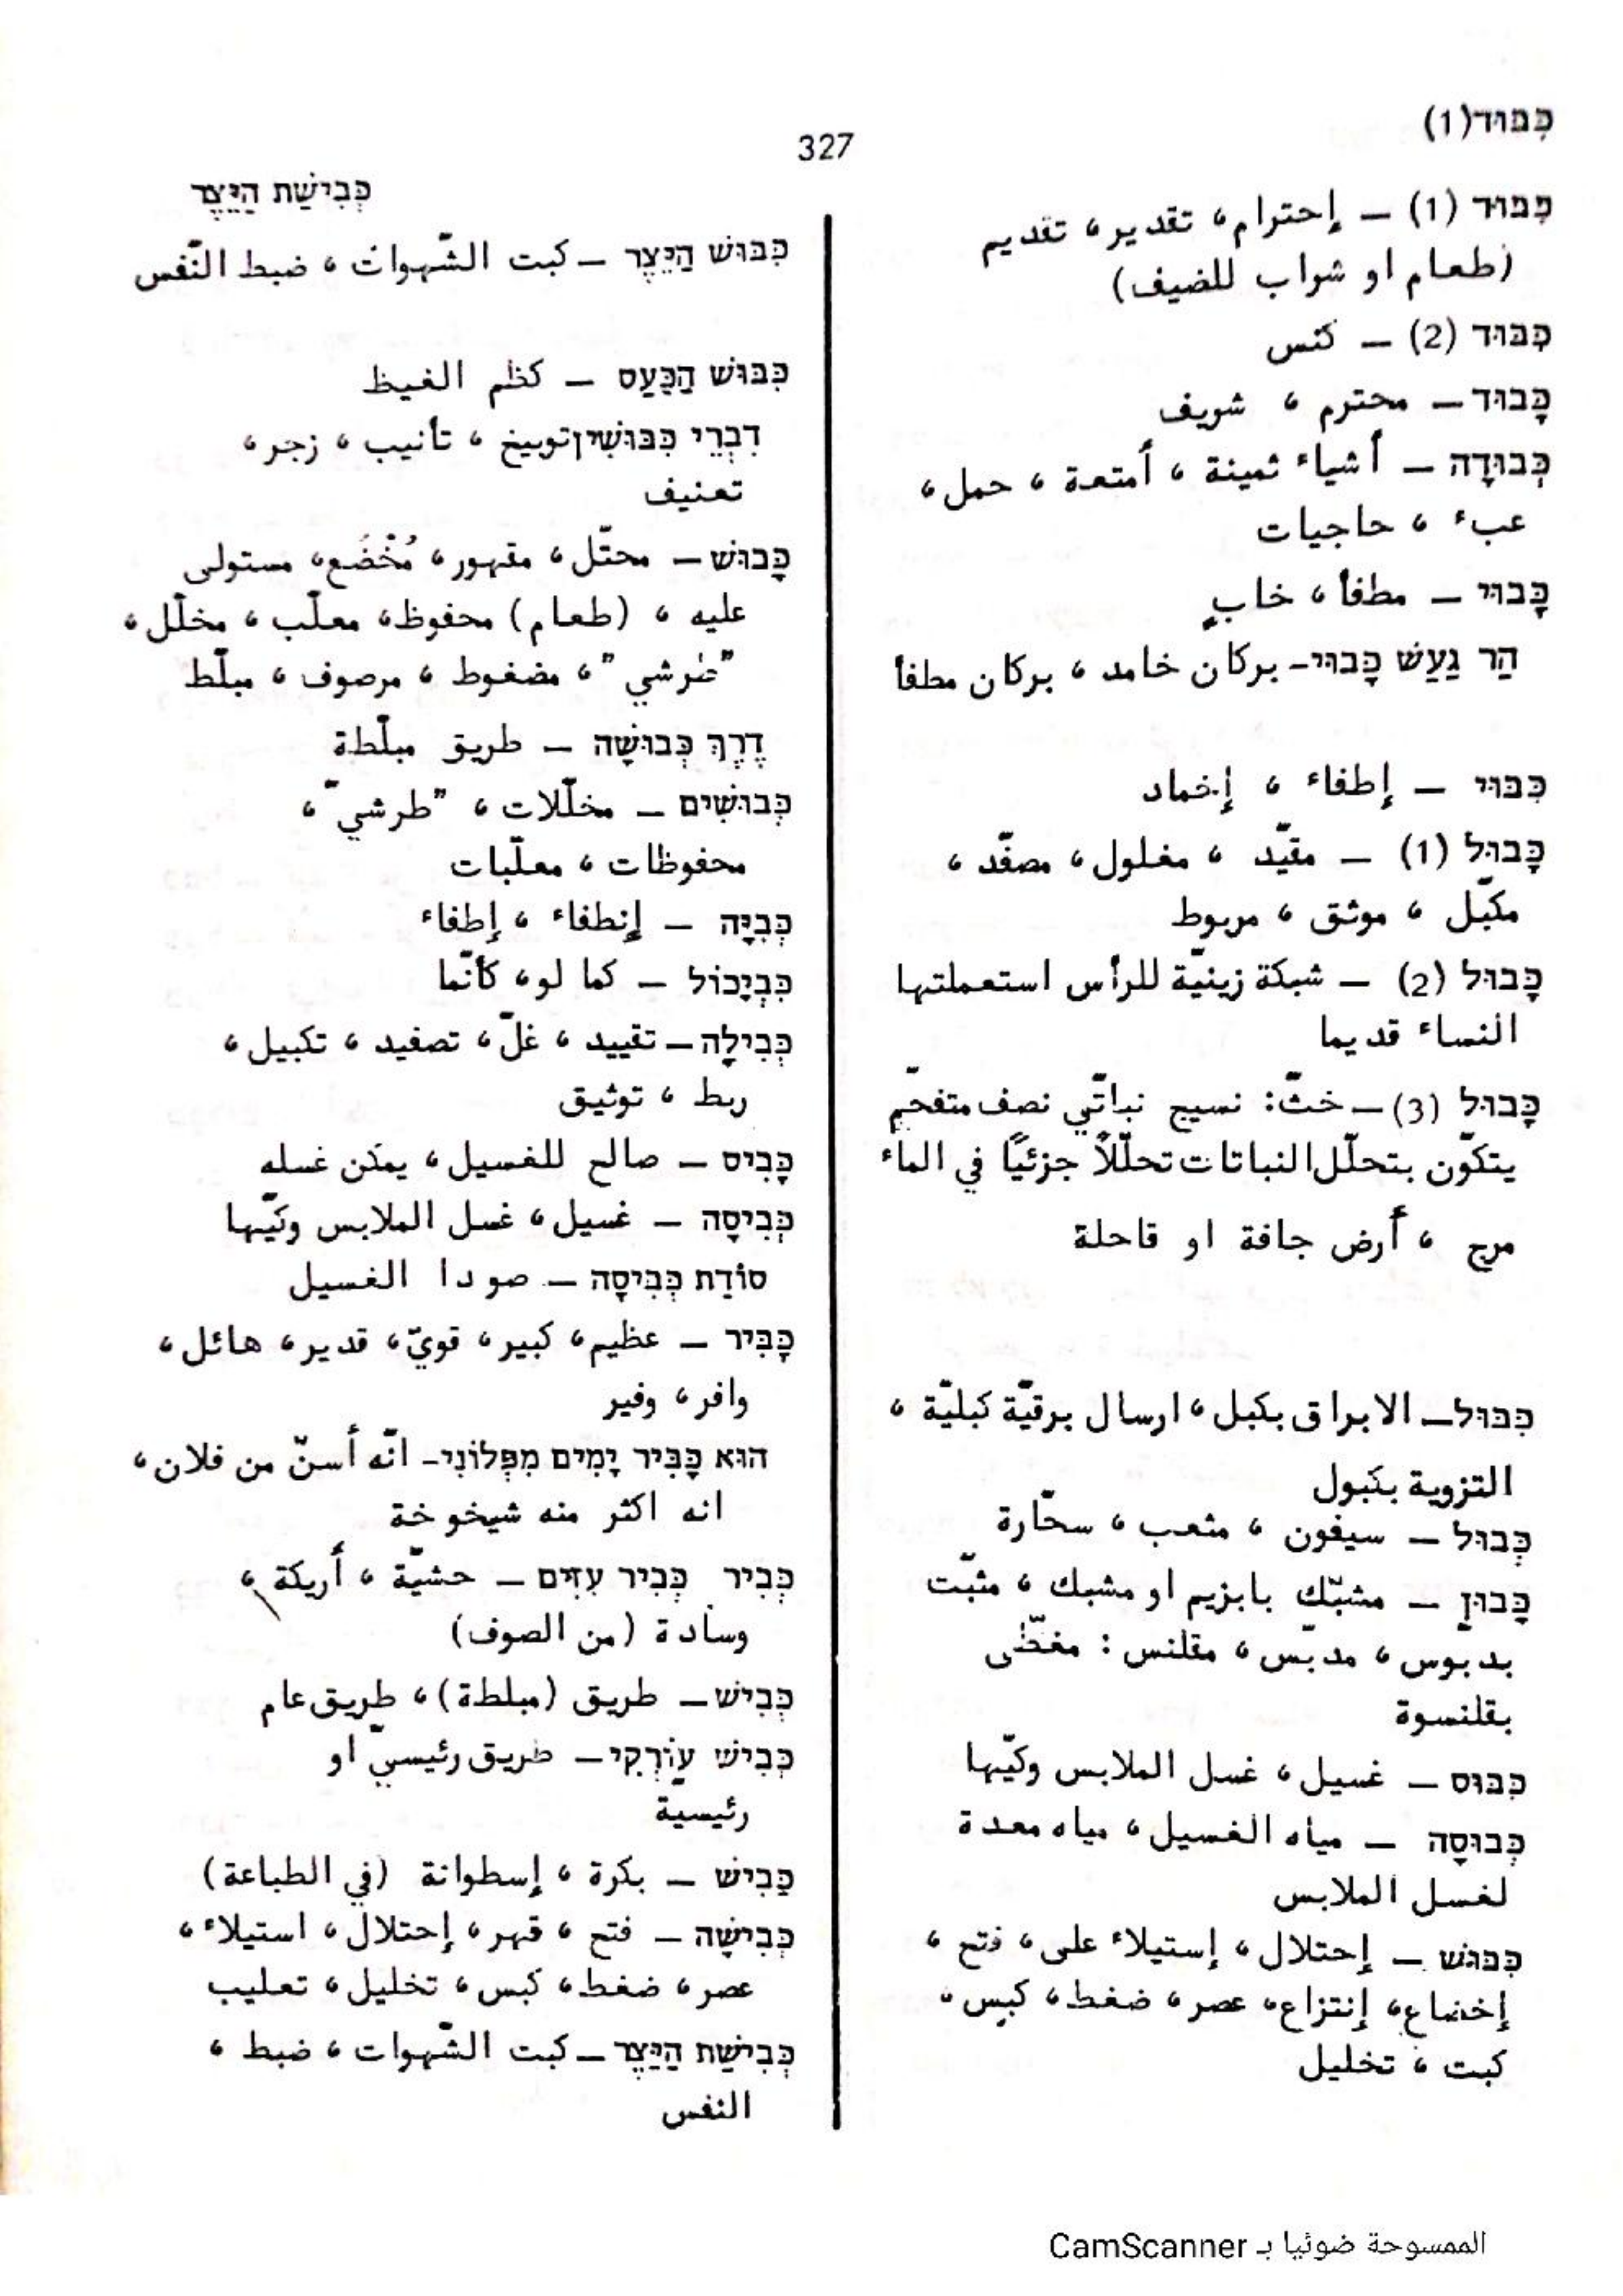 כִּבּוּד(1)
327
כְּבִישַׁת הַיֵּצֶר
כִּבּוּד (1) – إحترام، تقدير، تقديم
(طعام او شراب للضيف)
כִּבּוּד (2) – كنس
כָּבוּד – محترم ، شريف
כְּבוּדָה – أشياء ثمينة ، أمتعة ، حمل ،
عبء ، حاجيات
כָּבוּי – مطفأ ، خابٍ
הַר גַעַשׁ כָּבוּי – بركان خامد ، بركان مطفأ
כִּבּוּי – إطفاء ، إخماد
כָּבוּל (1) – مقيّد ، مغلول ، مصفّد ،
مكبّل ، موثق ، مربوط
כָּבוּל (2) – شبكة زينيّة للرأس استعملتها
النساء قديما
כָּבוּל (3) – خثّ: نسيج نباتّي نصف متفحّم
يتكوّن بتحلّل النباتات تحلّلاً جزئيًا في الماء
مرج ، أرض جافة او قاحلة
כִּבּוּל – الابراق بكبل ، ارسال برقيّة كبليّة ،
التزوية بكبول
כְּבוּל – سيفون ، مثعب ، سحّارة
כָּבוּן – مشبّك بابزيم او مشبك ، مثبّت
بدبّوس ، مدبّس ، مقلنس : مغطّى
بقلنسوة
כִּבּוּס – غسيل ، غسل الملابس وكيّها
כְּבוּסָה – مياه الغسيل ، مياه معدة
لغسل الملابس
כִּבּוּשׁ – إحتلال ، إستيلاء على ، فتح ،
إخضاع، إنتزاع، عصر ، ضغط ، كبس ،
كبت ، تخليل
כִּבּוּשׁ הַיֵּצֶר – كبت الشّهوات ، ضبط النّفس
כִּבּוּשׁ הַכַּעַס – كظم الغيظ
דִבְרֵי כִּבּוּשִׁין توبيخ ، تأنيب ، زجر ،
تعنيف
כָּבוּשׁ – محتّل ، مقهور ، مُخْضَع، مستولى
عليه ، (طعام) محفوظ، معلّب ، مخلّل ،
"طرشي" ، مضغوط ، مرصوف ، مبلّط
דֶרֶךְ כְּבוּשָׁה – طريق مبلّطة
כְּבוּשִׁים – مخلّلات ، "طرشي" ،
محفوظات ، معلّبات
כְּבִיָּה – إنطفاء ، إطفاء
כִּבְיָכוֹל – كما لو، كأنّما
כְּבִילָה – تقييد ، غلّ ، تصفيد ، تكبيل ،
ربط ، توثيق
כָּבִיס – صالح للغسيل ، يمكن غسله
כְּבִיסָה – غسيل ، غسل الملابس وكيّها
סוֹדַת כְּבִיסָה – صودا الغسيل
כָּבִּיר – عظيم، كبير ، قويّ ، قدير ، هائل ،
وافر ، وفير
הוּא כַּבִּיר יָמִים מִפְּלוֹנִי – انّه أسنّ من فلان ،
انه اكثر منه شيخوخة
כְּבִיר כְּבִיר עִזִּים – حشيّة ، أريكة ،
وسادة (من الصوف)
כְּבִישׁ – طريق (مبلطة) ، طريق عام
כְּבִישׁ עוֹרְקִי – طريق رئيسيّ او
رئيسيّة
כַּבִישׁ – بكرة ، إسطوانة (في الطباعة)
כְּבִישָׁה – فتح ، قهر ، إحتلال ، استيلاء ،
عصر ، ضغط ، كبس ، تخليل ، تعليب
כְּבִישַׁת הַיֵּצֶר – كبت الشّهوات ، ضبط ،
النفس
الممسوحة ضوئيا بـ CamScanner